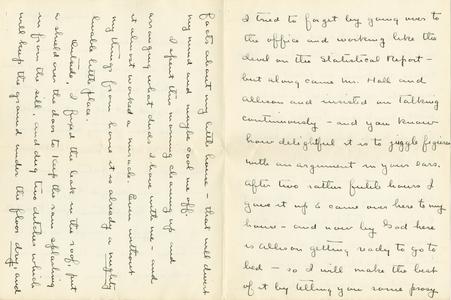 I tried to forget by going over to
the office and working like the
devil on the Statistical Report -
but along came Mr. Hall and
Allison and insisted on talking
continuously - and you know
how delightful it is to juggle figures
with an argument in your ears.
After two rather futile hours I
gave it up & came over here to my
house - and now by God here
is Allison getting ready to go to
bed - so I will make the best
of it by telling you some prosy
facts about my little home - that will divert
my mind and maybe cool me off.
I spent this morning cleaning up and
arranging what duds I have with me - and
it almost worked a miracle. Even without
my things from home it is already a mighty
livable little place.
Outside, I fixed the leak in the roof, put
a shield over the door to keep the rain splashing
in from the sill, and dug two ditches which
will keep the ground under the floor dry, and